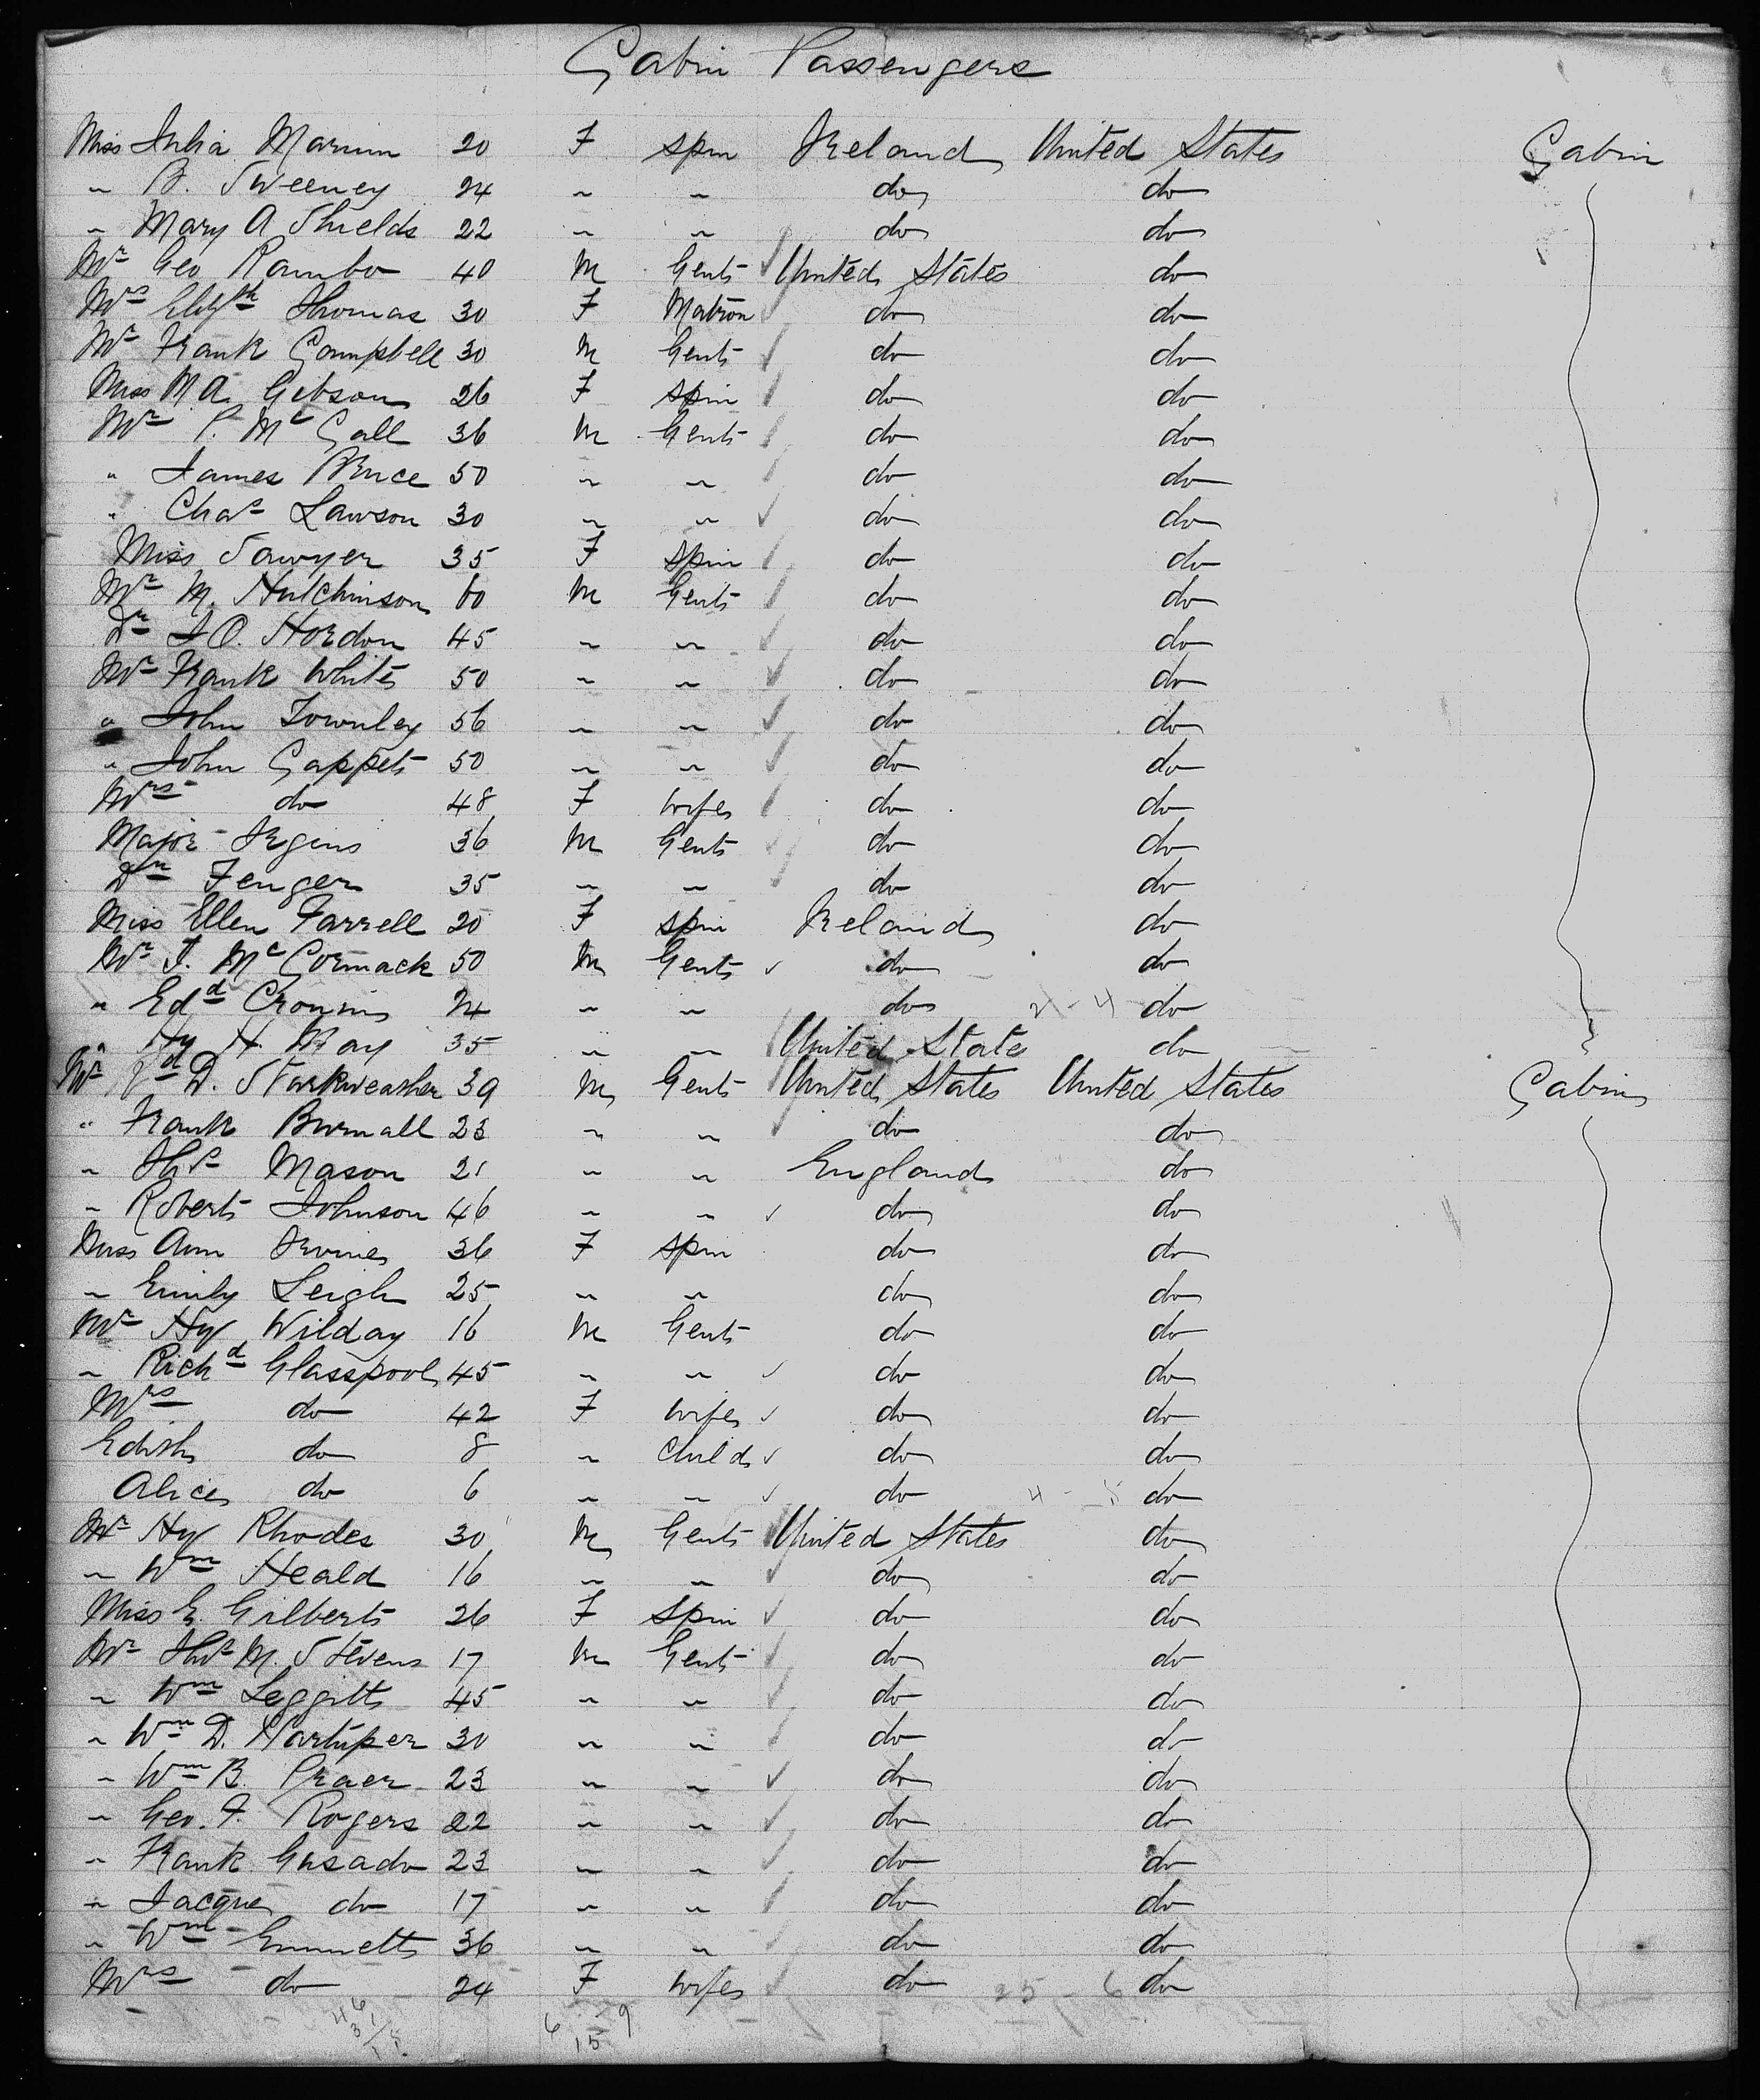 Cabin Passengers
Miss Julia Marnin 20 F Spin Ireland United States Cabin
" B. Sweeney 24 " " do do
" Mary A Shields 22 " " do do
Mr Geo Rambo 40 M Gent United States do
Mrs Elizth Thomas 30 F Matron do do
Mr Frank Campbell 30 M Gent do do
Miss M A. Gibson 26 F Spin do do
Mr P. Mc Call 36 M Gent do do
" James Bruce 50 " " do do
" Chas Lawson 30 " " do do
Miss Sawyer 35 F Spin do do
Mr M. Hutchinson 60 M Gent do do
Dr J O. Hordon 45 " " do do
Mr Frank White 50 " " do do
" John Townley 56 " " do do
" John Cappet 50 " " do do
Mrs do 48 F wife do do
Major 36 M Gent do do
Dr Fenger 35 " " do do
Miss Ellen Farrell 20 F Spin Ireland do
Mr J. Mc Cormack 50 M Gent do do
" Edd Cronin 24 " " do 2 - 4 do
" Hy H. May 35 " " United States do
Mr D. Starkweather 39 M Gent United States United States Cabin
" Frank Burnall 23 " " do do
" Thos Mason 21 " " England do
" Robert Johnson 46 " " do do
Miss Ann Irvine 36 F Spin do do
" Emily Leigh 25 " " do do
Mr Hy Wilday 16 M Gent do do
" Richd Glasspool 45 " " do do
Mrs do 42 F wife do do
Edith do 8 " Child do do
Alice do 6 " " do 4 - 5 do
Mr Hy Rhodes 30 M Gent United States do
" Wm Heald 16 " " do do
Miss E. Gilbert 26 F Spin do do
Mr Thos M. Stevens 17 M Gent do do
" Wm Leggitt 45 " " do do
" Wm D. 30 " " do do
" Wm B. Praer 23 " " do do
" Geo. F. Rogers 22 " " do do
" Frank Casado 23 " " do do
" Jacque do 17 " " do do
" Wm Emmett 36 " " do do
Mrs do 24 F wife do 25 - 6 do
6 9
15